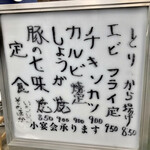 とり から揚定 850
エビ フライ定 950
チキンカツ 〃 850
カルビ 焼定 900
しょうが焼 〃 900
豚の七味焼 〃 850
定食
小宴会承ります